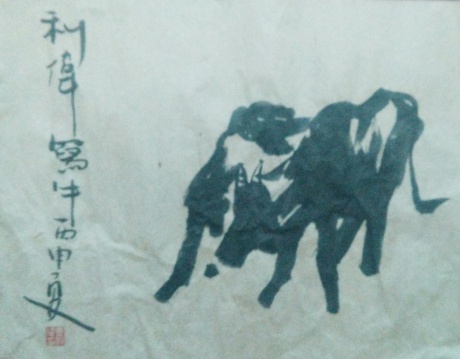 利偉寫牛丙申夏